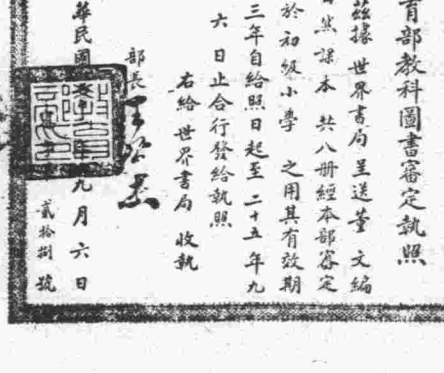 育部教科圖書審定執照
茲據 世界書局 呈送董 文編
然課本 共八册經本部審定
於初級小學 之用其有效期
三年自給照日起至二十五年九
六 日止合行發給執照
右給世界書局 收執
部長
華民國
九月六日
貳拾捌 號